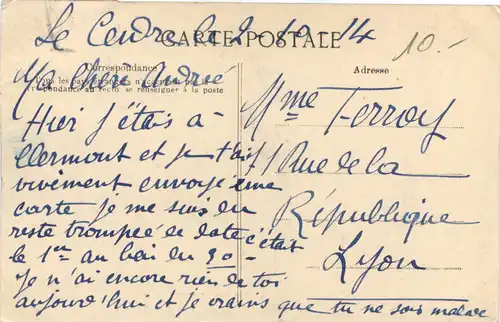 Le Cendre le 2-10-14
CARTE POSTALE
10.-
Correspondance
Ma chère Andrée
Tous les pays étrangers n'acceptent pas
respondance au recto se renseigner à la poste
Hier j'étais à
Clermont et je t'ai
vivement envoyé une
carte je me suis du
reste trompée de date c'était
le 1er au lieu du 30-
Je n'ai encore rien de toi
aujourd'hui et je crains que tu ne sois malade
Adresse
Mme Terroy
71 Rue de la
République
Lyon